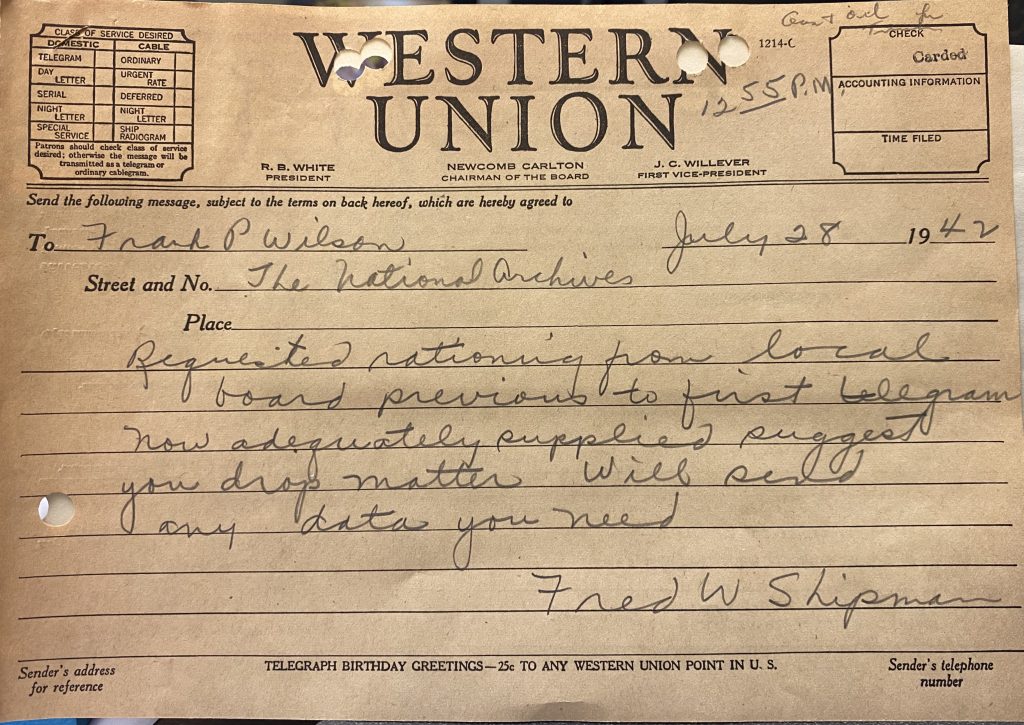 CLASS OF SERVICE DESIRED
DOMESTIC CABLE
TELEGRAM ORDINARY
DAY LETTER URGENT RATE
SERIAL DEFERRED
NIGHT LETTER NIGHT LETTER
SPECIAL SERVICE SHIP RADIOGRAM
Patrons should check class of service
desired; otherwise the message will be
transmitted as a telegram or
ordinary cablegram.
WESTERN
UNION
1214-C
12 55 P.M.
CHECK
Carded
ACCOUNTING INFORMATION
TIME FILED
R. B. WHITE
PRESIDENT
NEWCOMB CARLTON
CHAIRMAN OF THE BOARD
J. C. WILLEVER
FIRST VICE-PRESIDENT
Send the following message, subject to the terms on back hereof, which are hereby agreed to
To Frank P Wilson July 28 1942
Street and No. The National Archives
Place
Requested rationing from local
board previous to first telegram
now adequately supplied suggest
you drop matter Will send
any data you need
Fred W Shipman
Sender's address
for reference
TELEGRAPH BIRTHDAY GREETINGS—25c TO ANY WESTERN UNION POINT IN U. S.
Sender's telephone
number